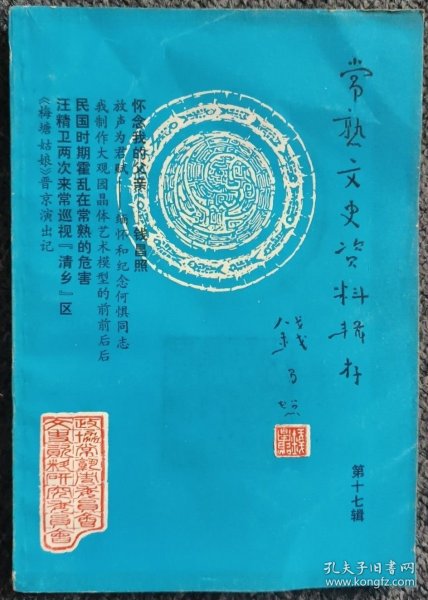 常熟文史资料辑存
钱昌照
第十七辑
怀念我的父亲——钱昌照
放声为君赋——缅怀和纪念何惧同志
我制作大观园晶体艺术模型的前前后后
民国时期霍乱在常熟的危害
汪精卫两次来常巡视『清乡』区
《梅塘姑娘》晋京演出记
政协常熟市委员会
文史资料研究委员会
孔夫子旧书网
www.kongfz.com